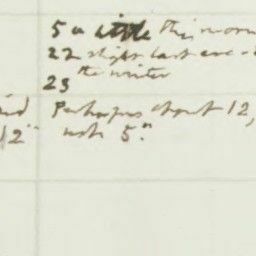 5 a little this morn
22 slight last eve
23 the writer
id Perhaps about 12,
12" not 5."